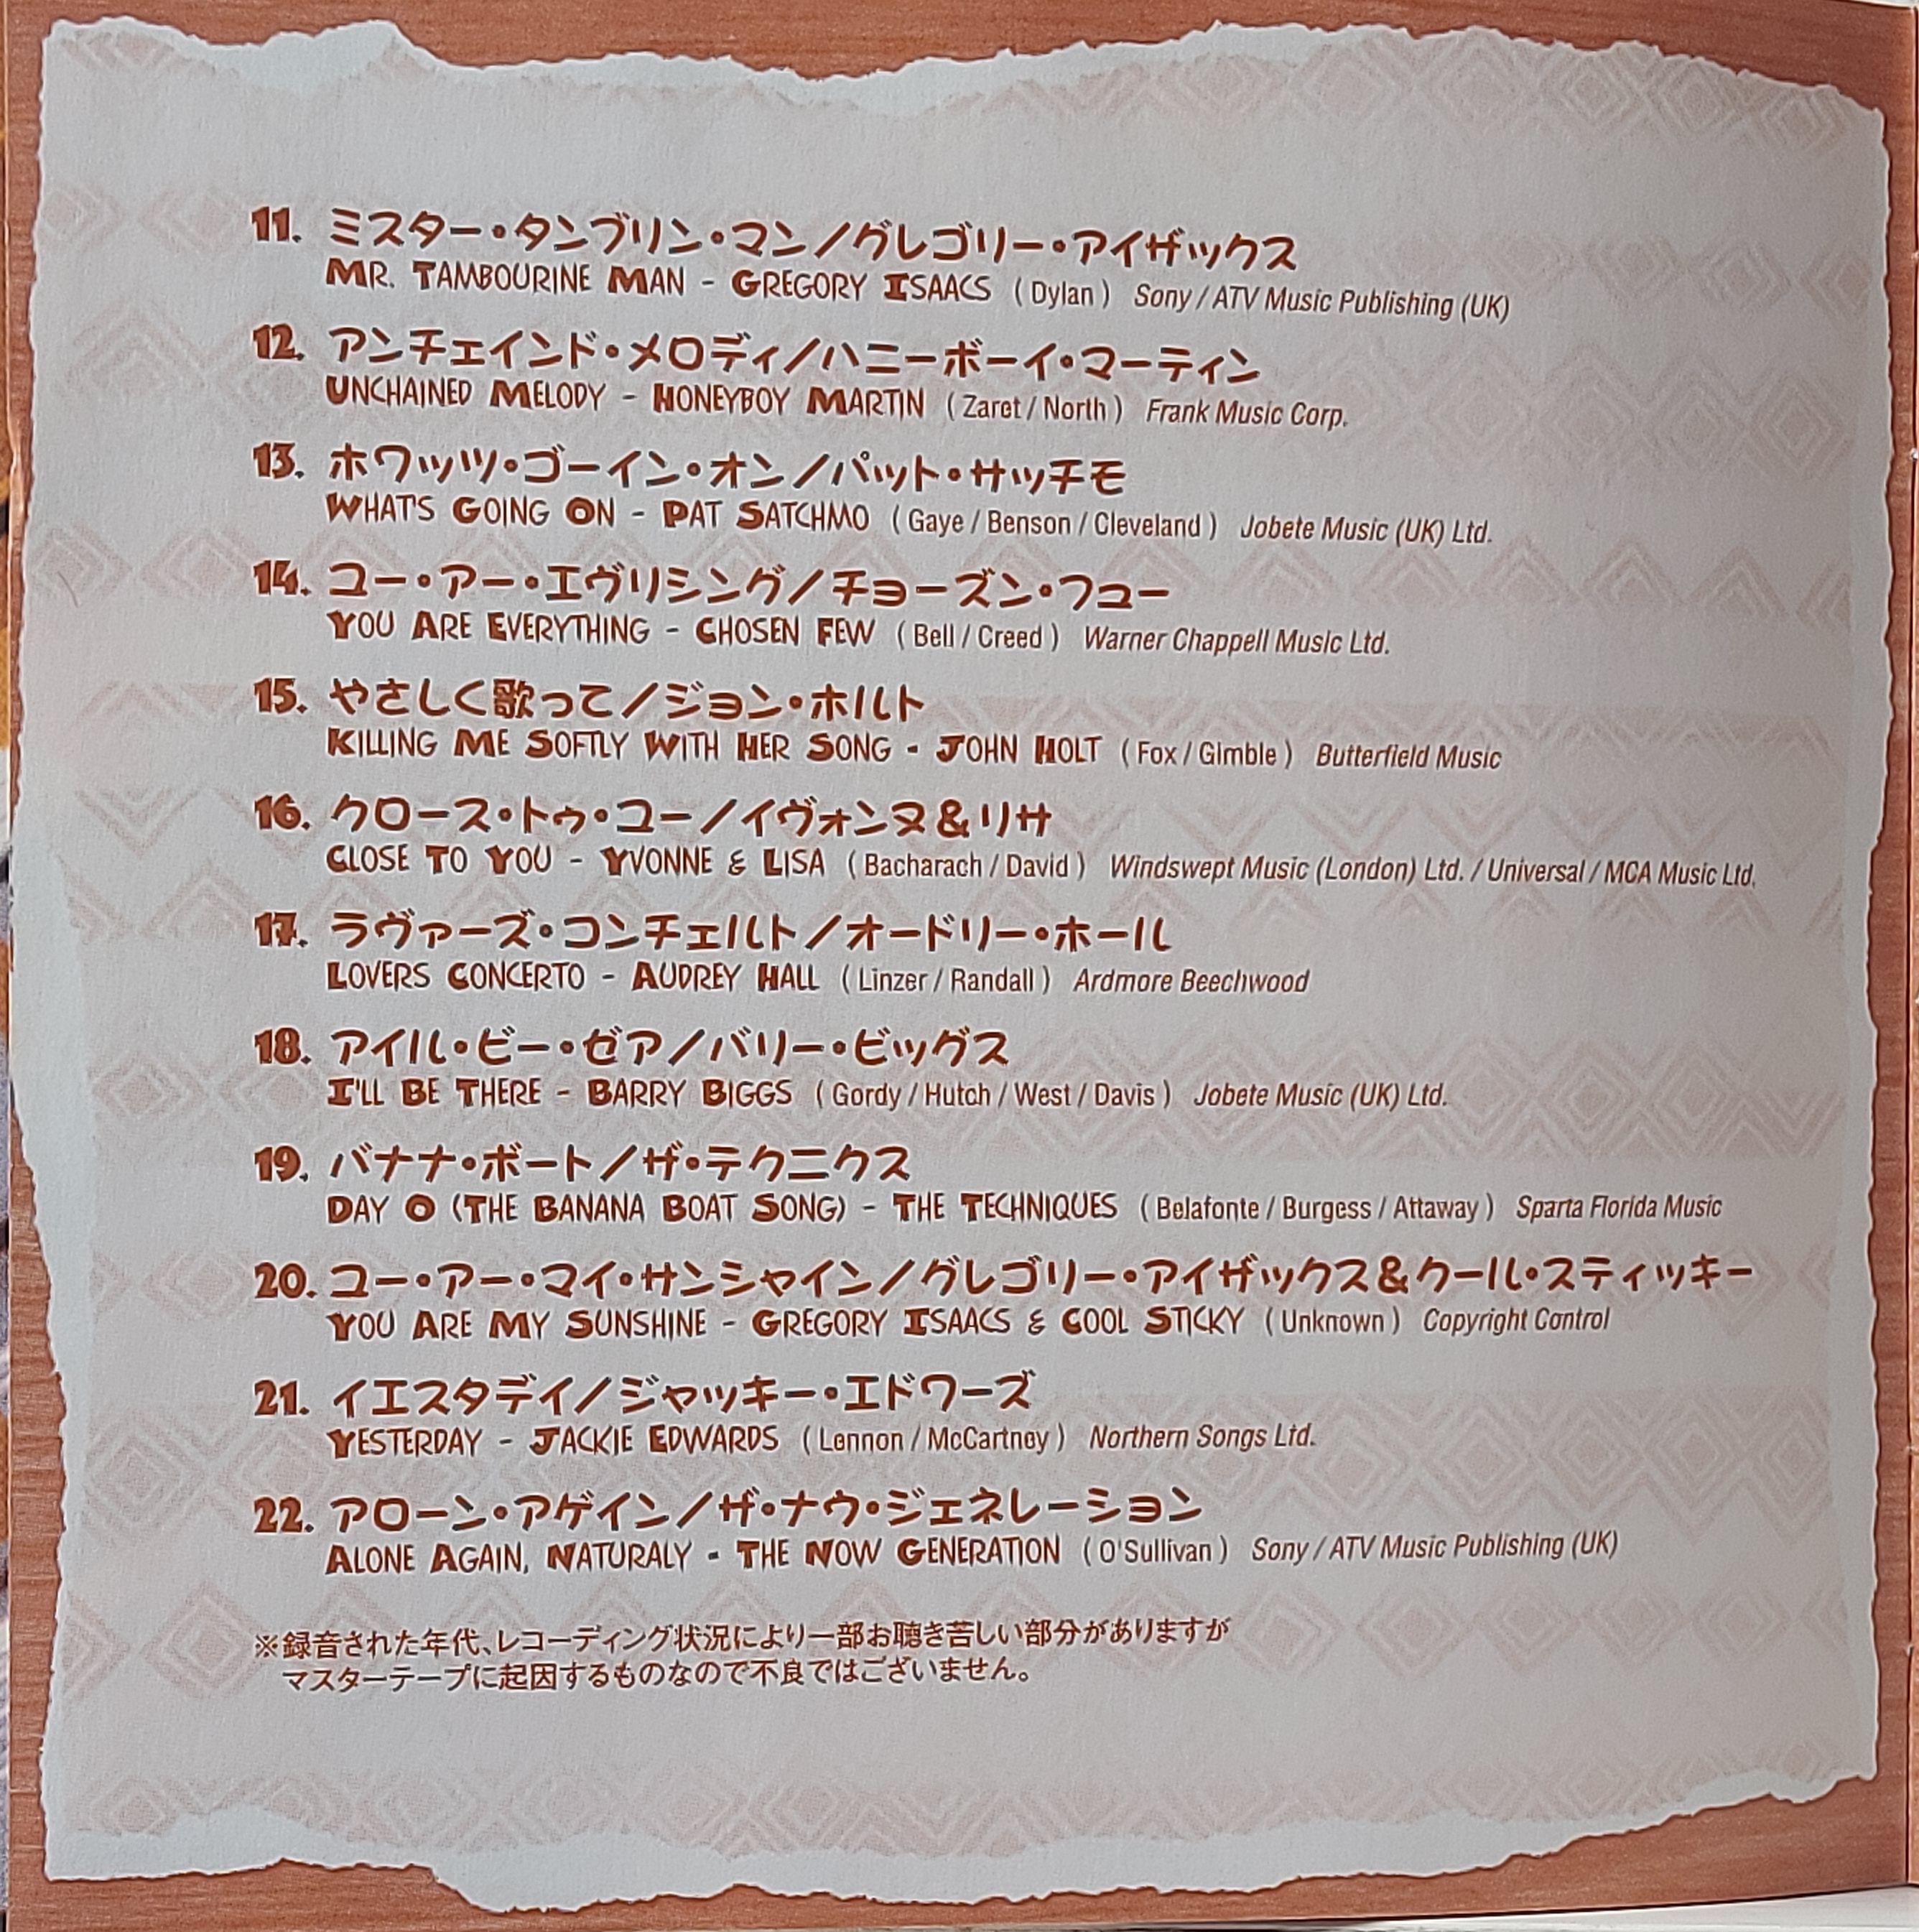 11. ミスター・タンブリン・マン／グレゴリー・アイザックス
MR. TAMBOURINE MAN - GREGORY ISAACS (Dylan) Sony / ATV Music Publishing (UK)
12. アンチェインド・メロディ／ハニーボーイ・マーティン
UNCHAINED MELODY - HONEYBOY MARTIN (Zaret / North) Frank Music Corp.
13. ホワッツ・ゴーイン・オン／パット・サッチモ
WHAT'S GOING ON - PAT SATCHMO (Gaye / Benson / Cleveland) Jobete Music (UK) Ltd.
14. ユー・アー・エヴリシング／チョーズン・フュー
YOU ARE EVERYTHING - CHOSEN FEW (Bell / Creed) Warner Chappell Music Ltd.
15. やさしく歌って／ジョン・ホルト
KILLING ME SOFTLY WITH HER SONG - JOHN HOLT (Fox / Gimble) Butterfield Music
16. クロース・トゥ・ユー／イヴォンヌ＆リサ
CLOSE TO YOU - YVONNE & LISA (Bacharach / David) Windswept Music (London) Ltd. / Universal / MCA Music Ltd.
17. ラヴァーズ・コンチェルト／オードリー・ホール
LOVERS CONCERTO - AUDREY HALL (Linzer / Randall) Ardmore Beechwood
18. アイル・ビー・ゼア／バリー・ビッグス
I'LL BE THERE - BARRY BIGGS (Gordy / Hutch / West / Davis) Jobete Music (UK) Ltd.
19. バナナ・ボート／ザ・テクニクス
DAY O (THE BANANA BOAT SONG) - THE TECHNIQUES (Belafonte / Burgess / Attaway) Sparta Florida Music
20. ユー・アー・マイ・サンシャイン／グレゴリー・アイザックス＆クール・スティッキー
YOU ARE MY SUNSHINE - GREGORY ISAACS & COOL STICKY (Unknown) Copyright Control
21. イエスタデイ／ジャッキー・エドワーズ
YESTERDAY - JACKIE EDWARDS (Lennon / McCartney) Northern Songs Ltd.
22. アローン・アゲイン／ザ・ナウ・ジェネレーション
ALONE AGAIN, NATURALY - THE NOW GENERATION (O'Sullivan) Sony / ATV Music Publishing (UK)
※録音された年代、レコーディング状況により一部お聴き苦しい部分がありますが
マスターテープに起因するものなので不良ではございません。